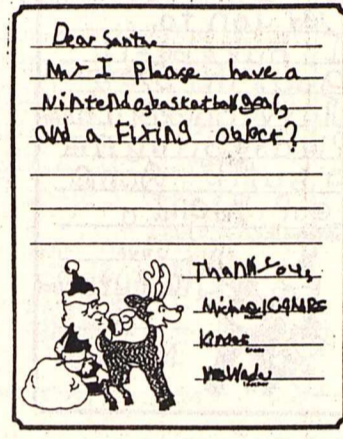 Dear Santa
May I please have a
Nintendo, basketball goal,
and a Flying object?
Thank you,
Michael
Grade
Teacher